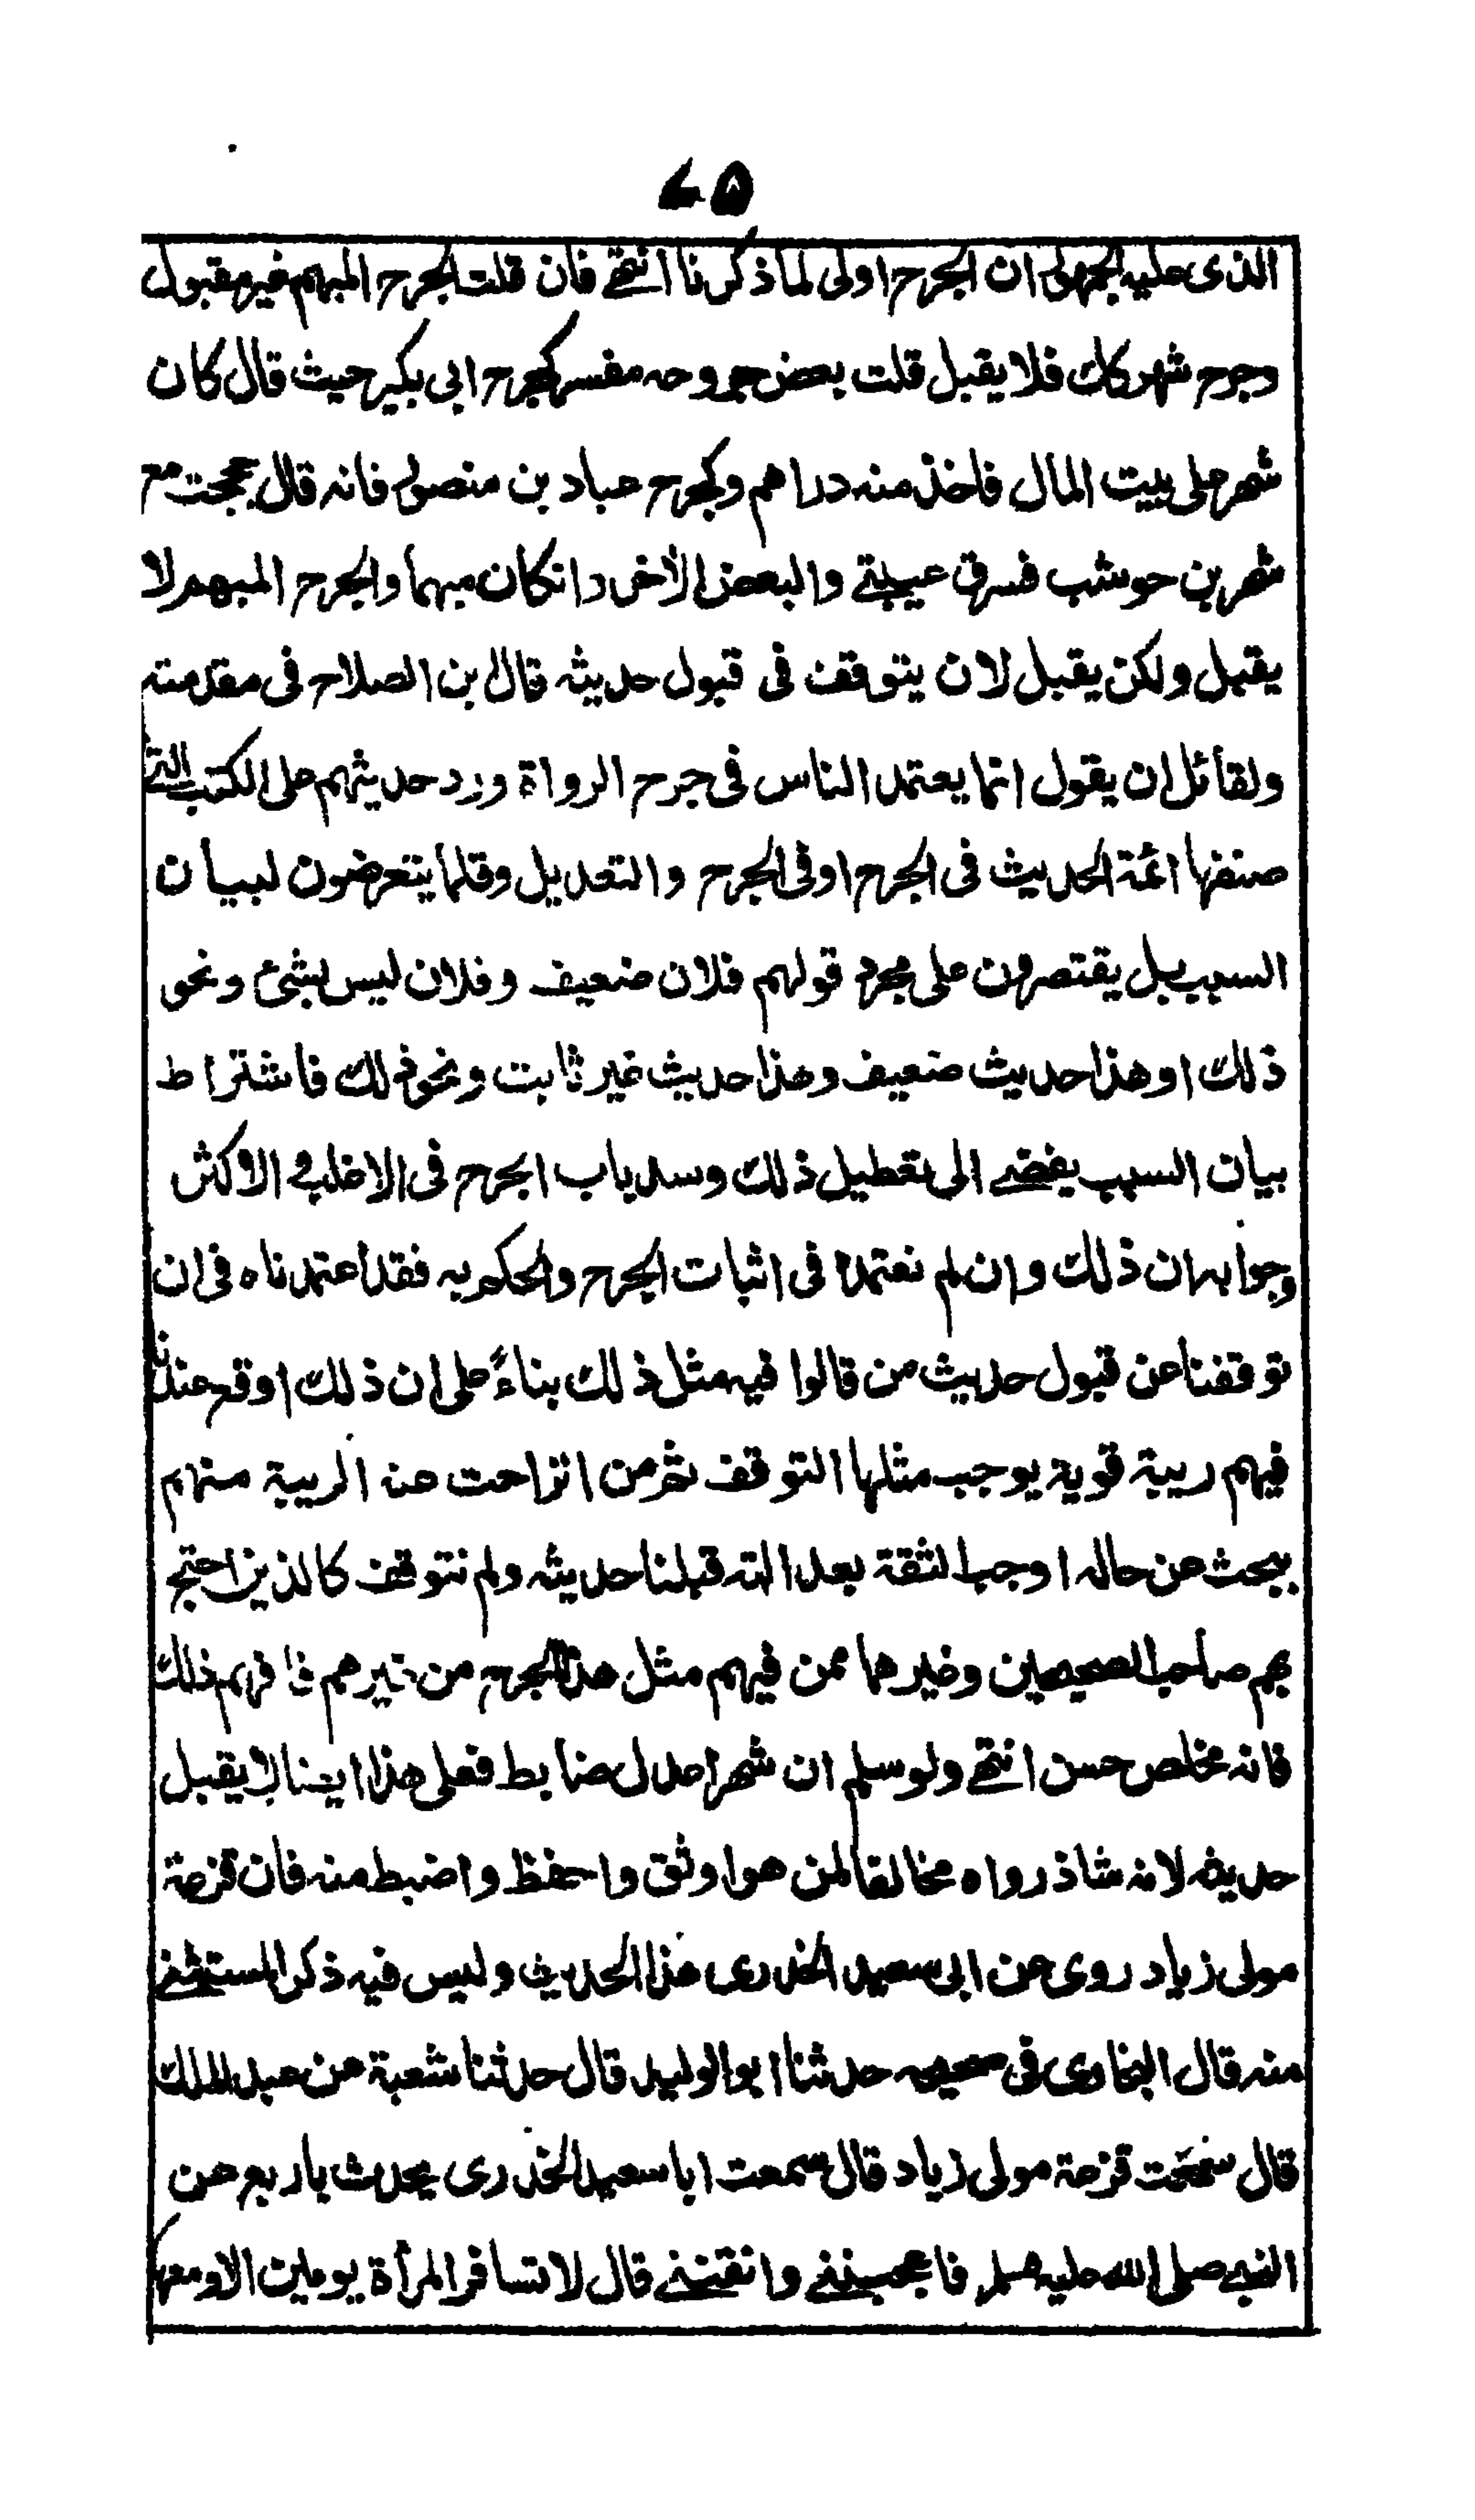 ٤٥
الذى عليه الجمهور ان الجرح اولى لما ذكرنا انتهى فان قلت الجرح المبهم غير مقبول
وجرح شهر كذلك فلا يقبل قلت بعض جروحه مفسر كجرح ابى بكير حيث قال كان
شهر على بيت المال فاخذ منه دراهم وكجرح عباد بن منصور فانه قال حججت مع
شهر بن حوشب فسرق عيبتى والبعض الآخر وانكان مبهما والجرح المبهم لا
يقبل ولكن يقبل لان يتوقف فى قبول حديثه قال بن الصلاح فى مقدمته
ولقائل ان يقول انما يعتمد الناس فى جرح الرواة ورد حديثهم على الكتب التى
صنفها ائمة الحديث فى الجرح او فى الجرح والتعديل وقلما يتعرضون لبيان
السبب بل يقتصرون على مجرد قولهم فلان ضعيف وفلان ليس بشئ ونحو
ذلك او هذا حديث ضعيف وهذا حديث غير ثابت ونحو ذلك فاشتراط
بيان السبب يفضى الى تعطيل ذلك وسد باب الجرح فى الاغلب الاكثر
وجوابه ان ذلك وان لم نعتمد فى اثبات الجرح والحكم به فقد اعتمدناه فى ان
توقفنا عن قبول حديث من قالوا فيه مثل ذلك بناءً على ان ذلك اوقع عندنا
فيهم ريبة قوية يوجب مثلها التوقف ثم من انزاحت عنه الريبة منهم
ببحث عن حاله اوجب الثقة بعدالته قبلنا حديثه ولم نتوقف كالذين احتج
بهم صاحبا الصحيحين وغيرهما ممن فيهم مثل هذا الجرح من غيرهم فافهم ذلك
فانه مخلص حسن انتهى ولو سلم ان شهرا عدل ضابط فعلى هذا ايضا لا يقبل
حديثه لانه شاذ رواه مخالفا لمن هو اوثق واحفظ واضبط منه فان قزعة
مولى زياد روى عن ابى سعيد الخدرى هذا الحديث وليس فيه ذكر المستثنى
منه قال البخارى فى صحيحه حدثنا ابو الوليد قال حدثنا شعبة عن عبد الملك
قال سمعت قزعة مولى زياد قال سمعت ابا سعيد الخدرى يحدث باربع عن
النبى صلى الله عليه وسلم فاعجبننى وانقننى قال لا تسافر المرأة يومين الا ومعها